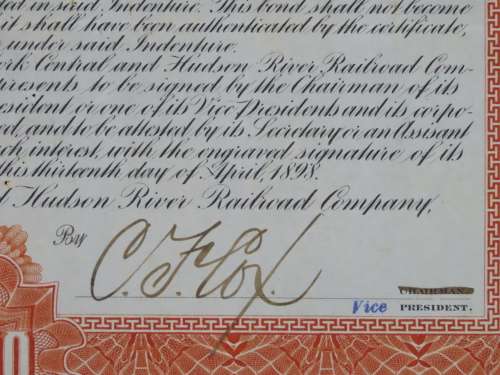 ed in said Indenture. This bond shall not become
it shall have been authenticated by the certificate,
under said Indenture.
rk Central and Hudson River Railroad Com-
presents to be signed by the Chairman of its
esident or one of its Vice Presidents and its corpo-
ed, and to be attested by its Secretary or an Assisant
ch interest, with the engraved signature of its
this thirteenth day of April, 1898.
d Hudson River Railroad Company,
By C. F. Cox.
CHAIRMAN.
Vice PRESIDENT.